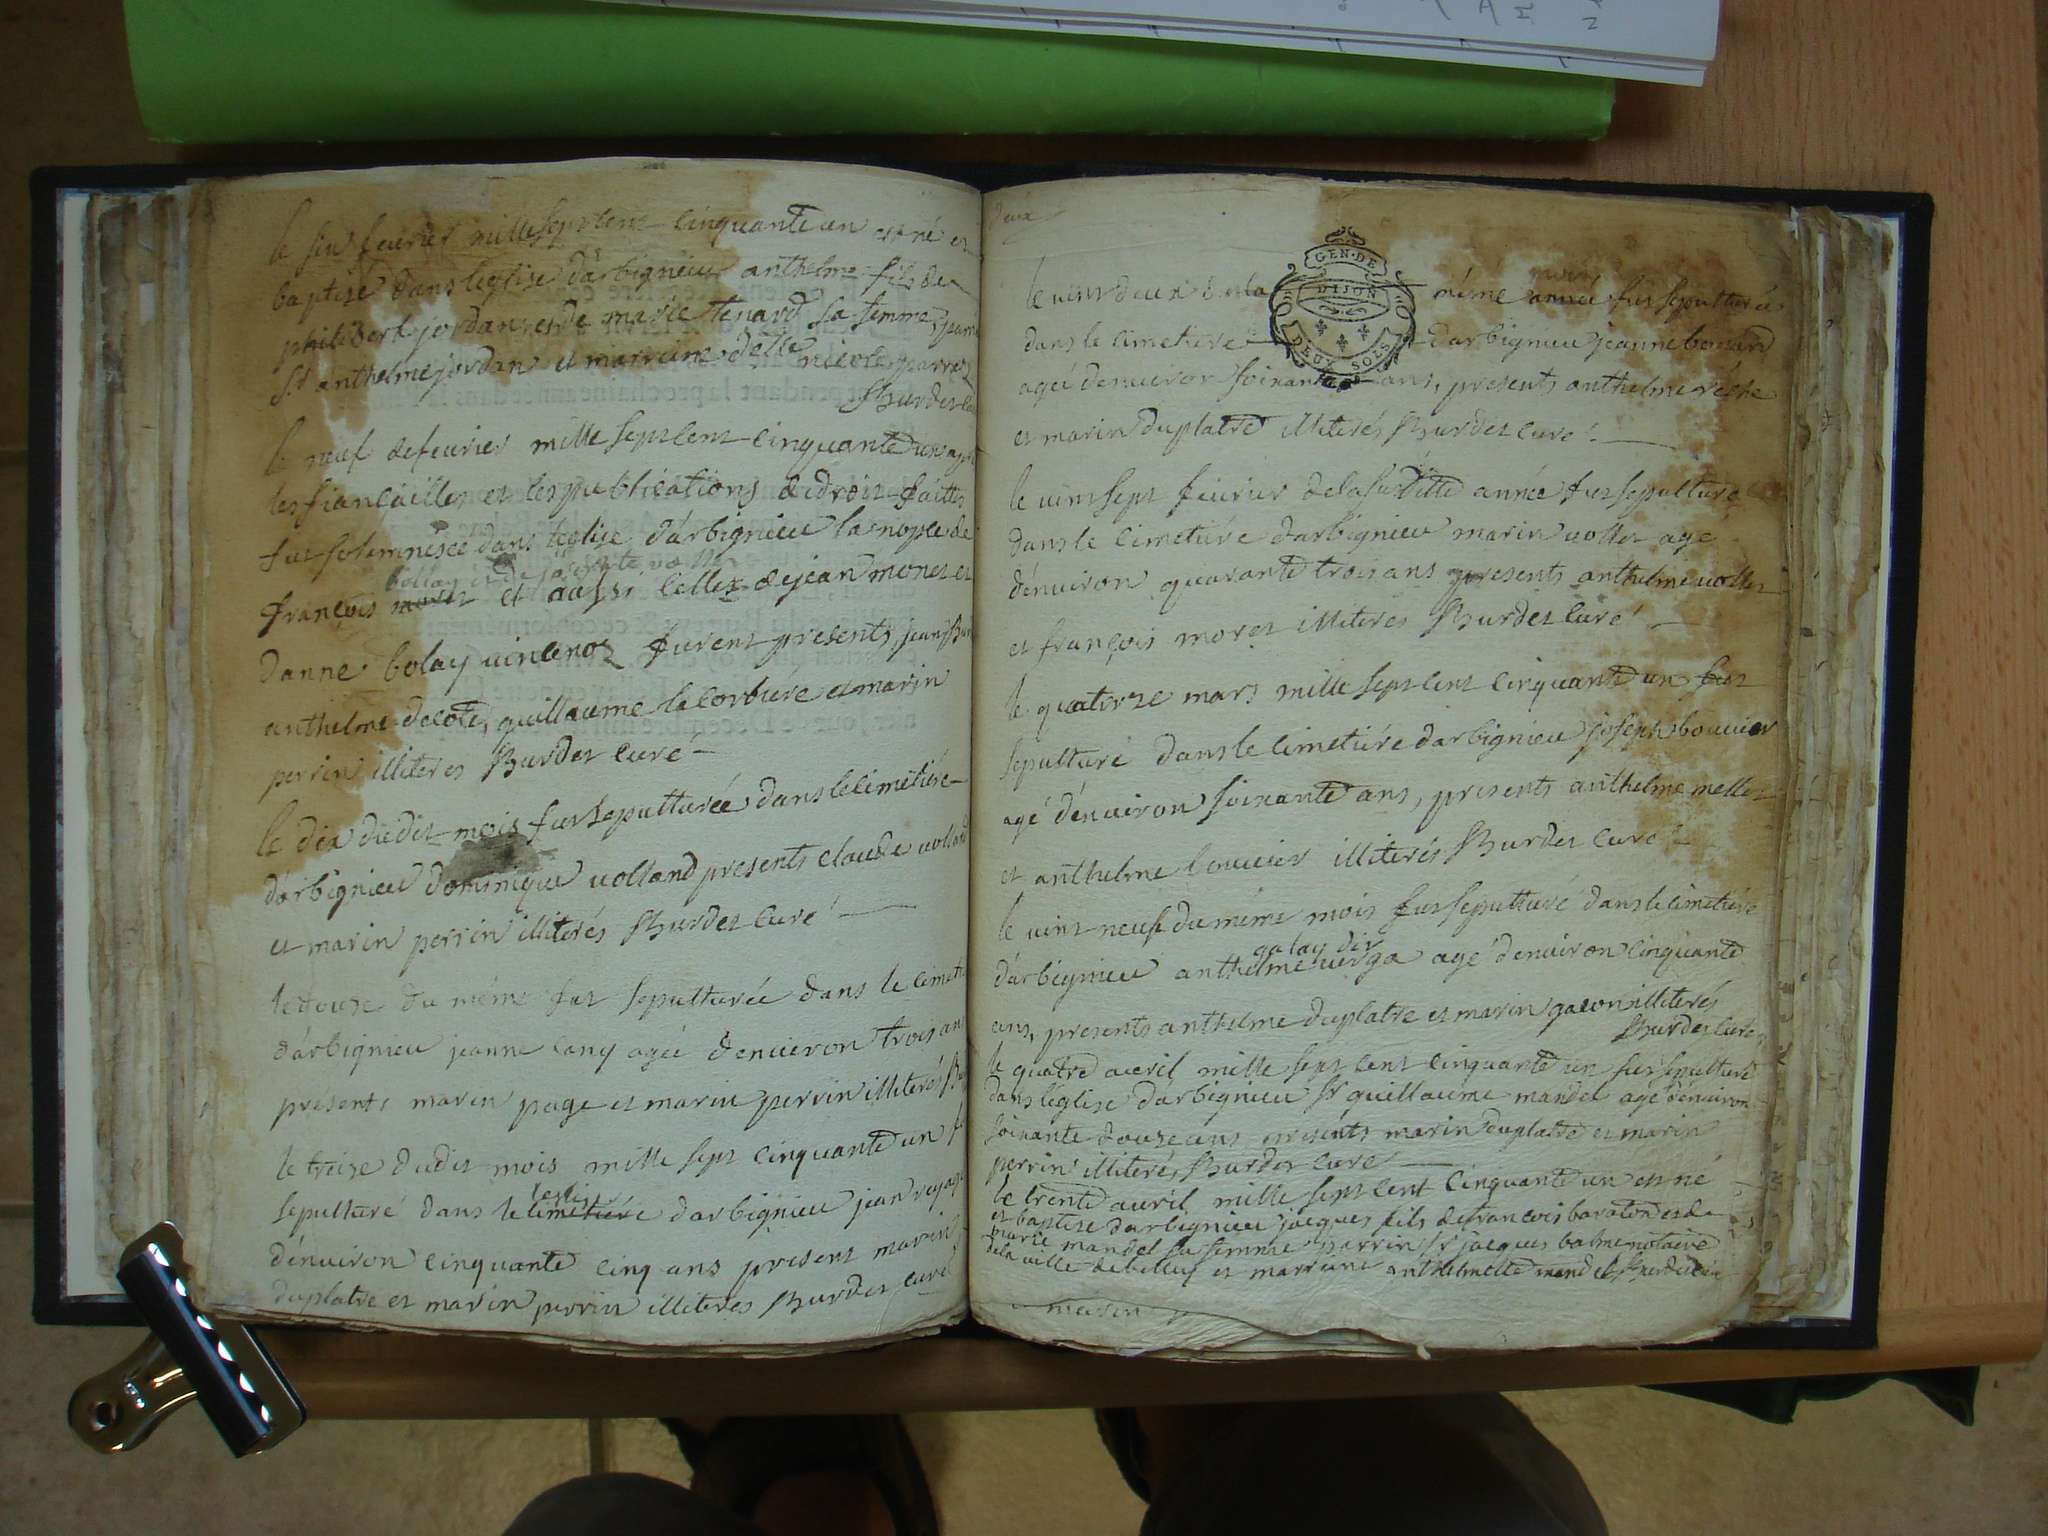 le six fevrier mille sept cent cinquante un est né et
baptisé dans leglise d'arbignieu anthelme fils de
philibert jordan et de marie tenard sa femme,
Sr anthelme jordan et marraine delle nicole
Burdet
le neuf de fevrier mille sept cent cinquante un
les fiançailles et les publications de droit faittes
fut solemnisée dans leglise d'arbignieu la nopce de
bollay et de
françois moret et aussi celles de jean monet et
danne bolay vincenoz furent presents, jean
anthelme decote, guillaume lacorbiere et marin
perrin illiteres Burdet curé
le dix dudit mois fut sepulturée dans le cimetiére
d'arbignieu dominique volland presents claude volland
et marin perrin illiterés Burdet curé
le douze du méme fut sepulturée dans le
d'arbignieu jeanne cany agée d'enuiron trois ans
presents marin page et marin perrin illiterés
le treize dudit mois mille sept cinquante un
leglise
sepulturé dans le cimetiére d'arbignieu jean
d'enuiron cinquante cinq ans present marin
duplatre et marin perrin illiteres Burdet curé
deux
GEN·DE
DIJON
DEUX SOLS
le vint deux de la méme année fut sepulturée
dans le cimetiére d'arbignieu jeanne
agée denuiron soixante ans, presents anthelme
et marin duplatre illiterés Burdet curé
le vint sept feurier de la susditte année fut sepulturé
dans le cimetiére d'arbignieu marin vollet agé
d'enuiron quarante trois ans presents anthelme vollet
et françois moret illiteres Burdet curé
le quatorze mars mille sept cent cinquante un fut
sepulturé dans le cimetiére d'arbignieu joseph bouvier
agé d'enuiron soixante ans, presents anthelme mellet
et anthelme bouvier illiterés Burdet curé
le vint neuf du méme mois fut sepulturé dans le cimetiére
galay dit
d'arbignieu anthelme verga agé d'enuiron cinquante
ans, presents anthelme duplatre et marin illiterés
Burdet curé
le quatre avril mille sept cent cinquante un fut sepulturé
dans l'eglise d'arbignieu Sr guillaume mandel agé d'enuiron
soixante douze ans presents marin duplatre et marin
perrin illiterés, Burdet curé
le trente avril mille sept cent cinquante un est né
et baptisé d'arbignieu jacques fils de francois baraton et de
marie mandel sa femme parrin Sr jacques balme notaire
de la ville de belley et marraine anthelmette mandel Burdet curé